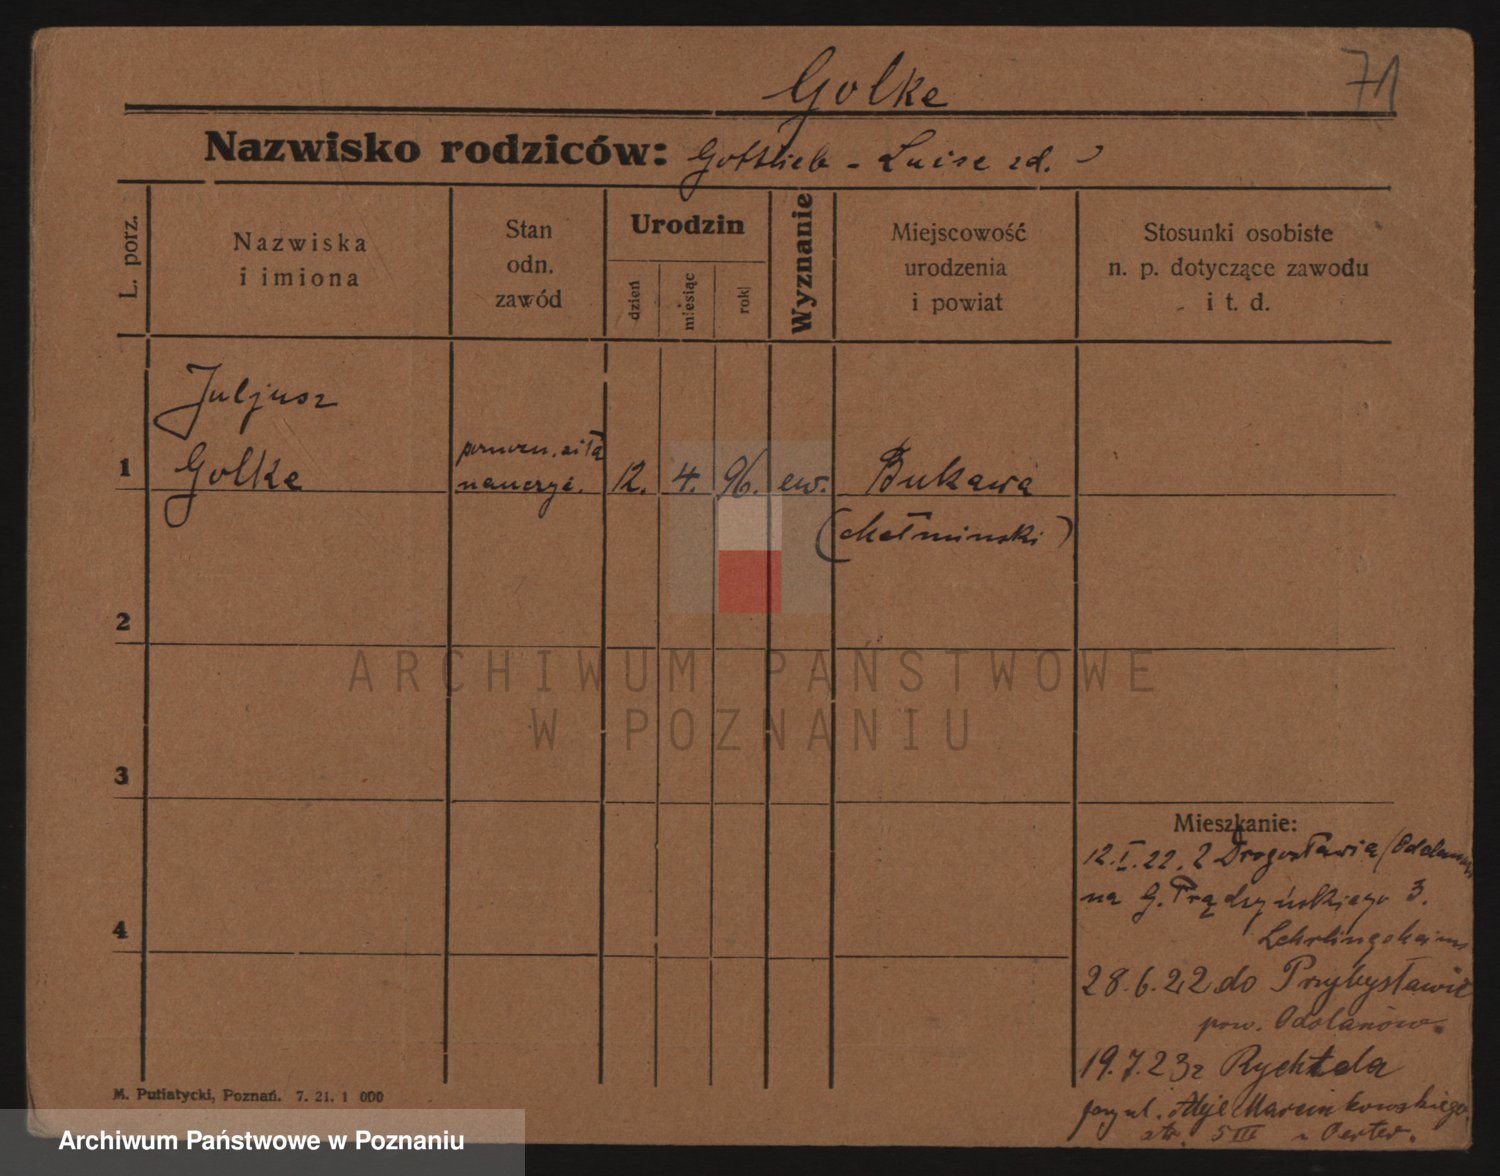 Golke
71
Nazwisko rodziców: Gottlieb - Luise zd. ?
L. porz.
Nazwiska
i imiona
Stan
odn.
zawód
Urodzin
dzień
miesiąc
rok
Wyznanie
Miejscowość
urodzenia
i powiat
Stosunki osobiste
n. p. dotyczące zawodu
i t. d.
Juljusz
1 Golke
nauczyc. 12. 4. 96. ew. Bukawa
(chełmiński)
2
ARCHIWUM PAŃSTWOWE
W POZNANIU
3
Mieszkanie:
12. I. 22. z Drogosławia
na G. Prądzyńskiego 3.
4
Lehrlingsheim
28. 6. 22 do Przybysławic
pow. Odolanów.
19. 7. 23 z Rychtala
Aleje Marcinkowskiego
5 III
M. Putiatycki, Poznań. 7. 21. 1 000
Archiwum Państwowe w Poznaniu